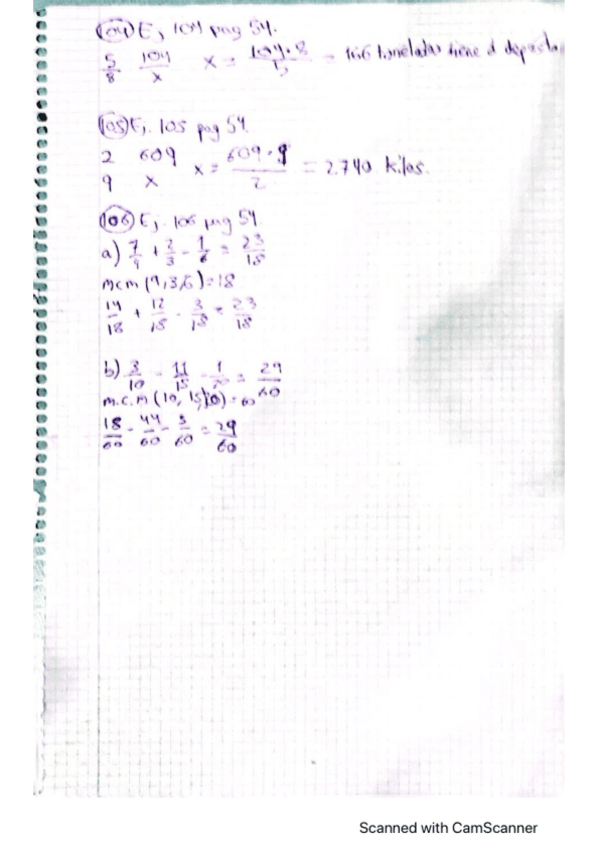 104 Ej 104 pag 54.
5/8 104/x x = 104·8/5 = 166 toneladas tiene el deposito
105 Ej. 105 pag 54.
2 609 x = 609·9/2 = 2.740 kilos.
9 x
106 Ej. 106 pag 54.
a) 7/9 + 2/3 - 1/6 = 23/18
mcm (9,3,6) = 18
14/18 + 12/18 - 3/18 = 23/18
b) 3/10 - 11/15 - 1/20 = 29/60
m.c.m (10, 15, 20) = 60
18/60 - 44/60 - 3/60 = 29/60
Scanned with CamScanner